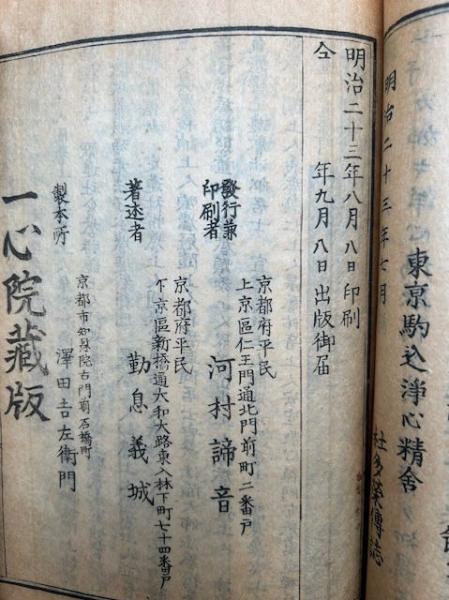 東京駒込淨心精舍
明治二十三年七月
杜多榮傳誌
明治二十三年八月八日印刷
仝 年九月八日出版御届
京都府平民
上京區仁王門通北門前町二番戸
發行兼
印刷者 河村諦音
京都府平民
下京區新橋通大和大路東入林下町七十四番戸
著述者 勤息義城
京都市知恩院古門前石橋町
製本所 澤田吉左衛門
一心院藏版